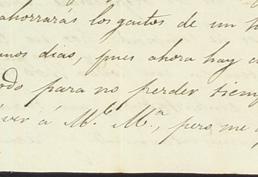 ahorrarás los gastos de un
unos dias, pues ahora hay
para no perder tiemp
ver á M.ᵉ M.ᵃ, pero me